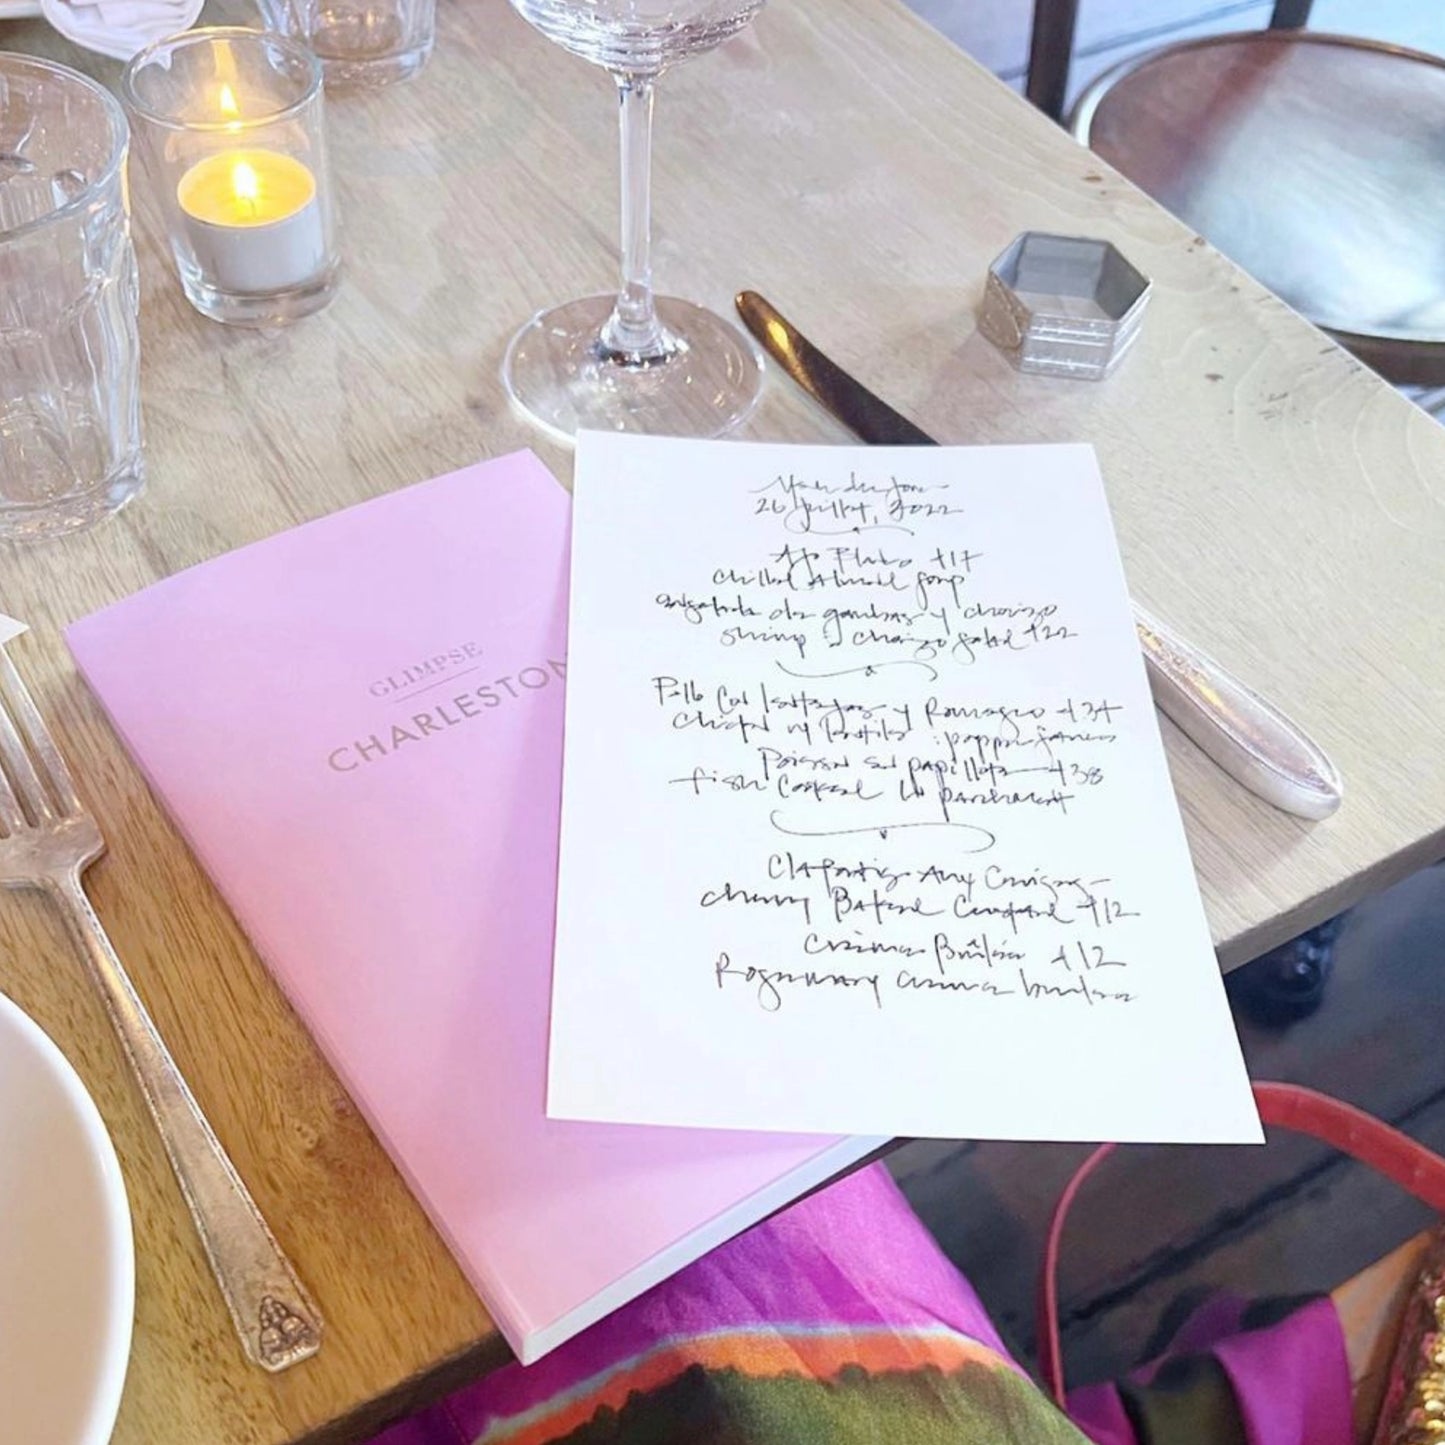 GLIMPSE
CHARLESTON
26 Juillet, 2022
Ajo Blanco +17
Chilled Almond Soup
Ensalada de gambas y chorizo
Shrimp & chorizo salad +22
y Romesco +34
Chicken w/
Poisson en papillote +38
fish cooked in parchment
Clafoutis Aux Cerises
Cherry Baked Custard +12
Crème Brûlée +12
Rosemary creme brulee